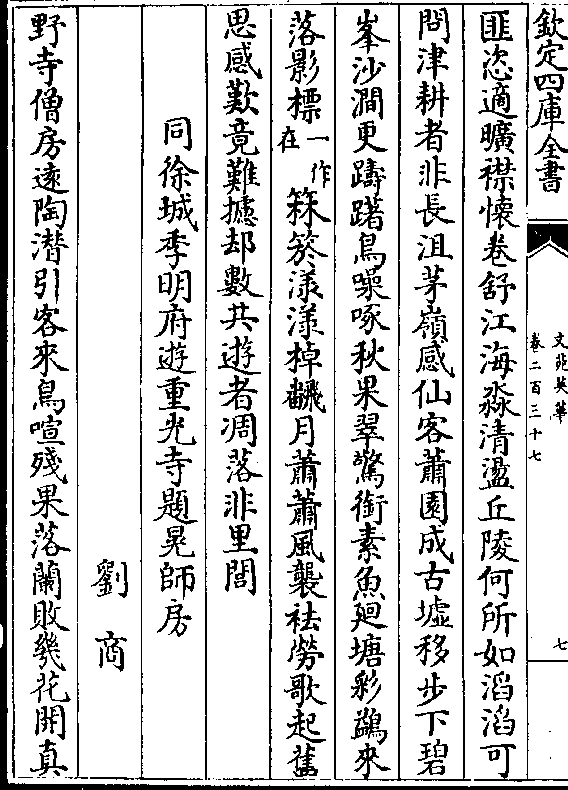 欽定四庫全書
文苑英華
卷二百三十七
七
匪恣適曠襟懷卷舒江海淼清盪丘陵何所如滔滔可
問津耕者非長沮茅嶺感仙客蕭園成古墟移步下碧
峯沙澗更躊躇鳥噪啄秋果翠驚銜素魚廻塘彩鷁來
落影標一作在箖箊漾漾棹翻月蕭蕭風襲袪勞歌起舊
思感歎竟難攄却數共遊者凋落非里閭
同徐城季明府遊重光寺題晃師房
劉商
野寺僧房遠陶潜引客來鳥喧殘果落蘭敗幾花開真